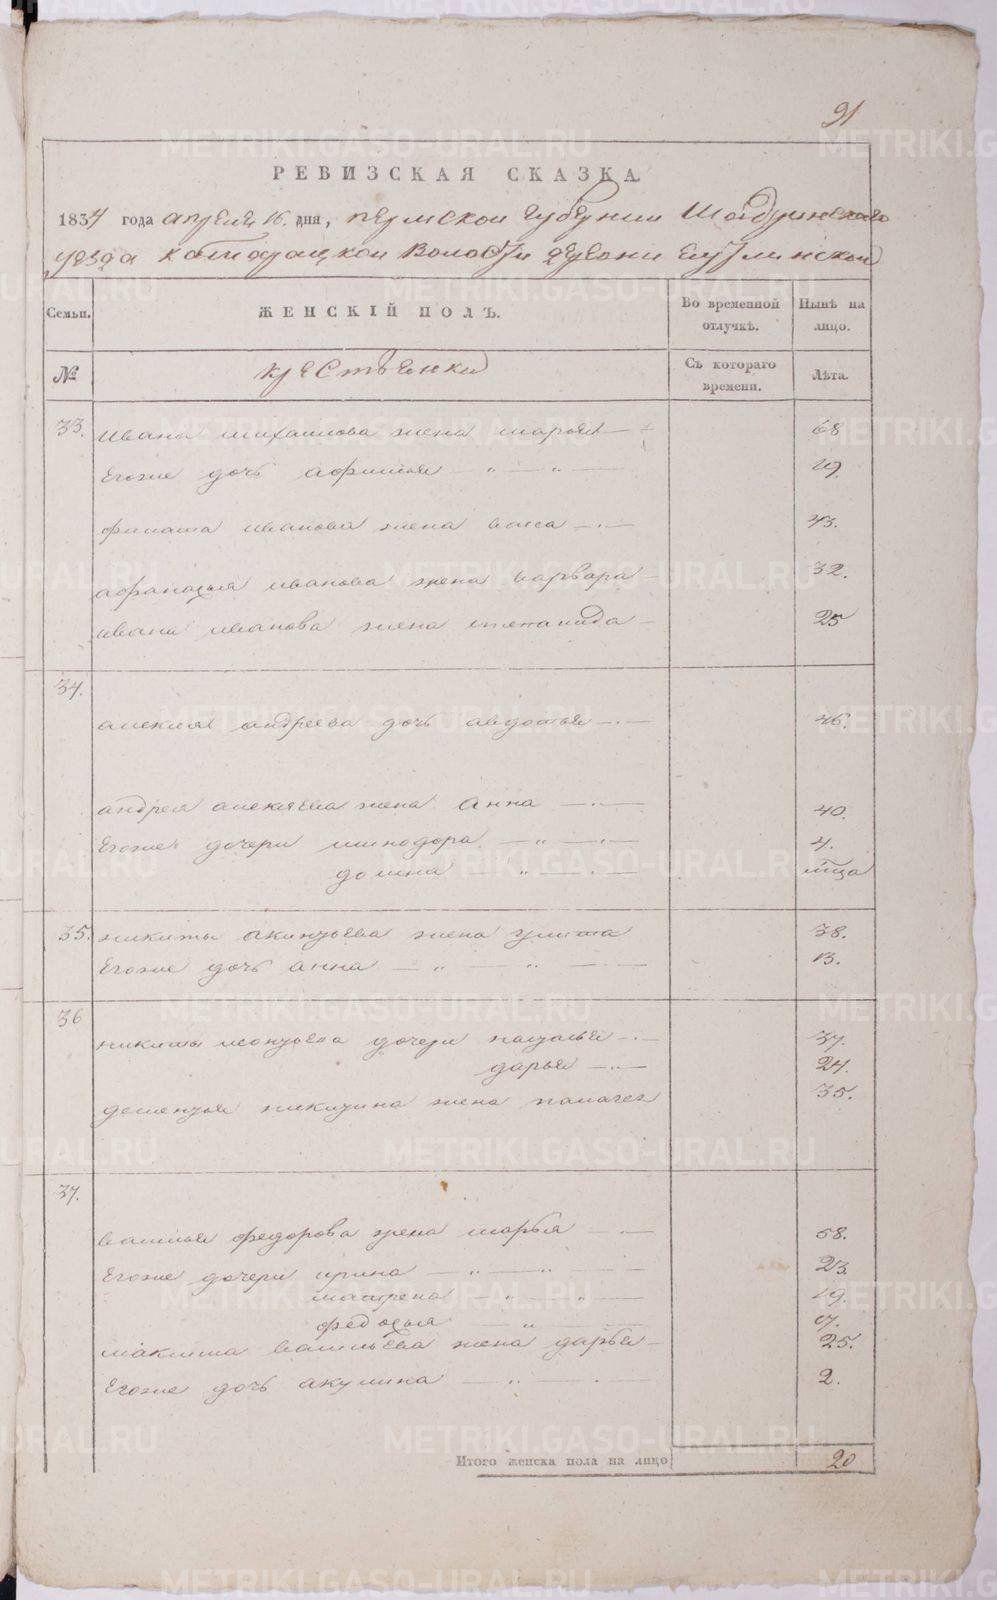 91
РЕВИЗСКАЯ СКАЗКА
1834 года апреля 16 дня, пермской губернии Шадринского
уезда катарацкой волости деревни
Семьи. ЖЕНСКІЙ ПОЛЪ. Во временной отлучкѣ. Нынѣ на лицо.
№ крестьенки Съ котораго времени. Лѣта.
33. ивана михаилова жена марья 68
Егоже дочь афимья 19.
филата иванова жена васса 43.
афанасья иванова жена варвара 32.
ивана иванова жена степанида 25
34.
алексея андреева дочь авдотья 46.
андрея алексеева жена анна 40.
Егоже дочери минодора 4.
домна
35. никиты жена улита 38.
Егоже дочь анна 13.
36
никиты леонтьева дочери наталья 37.
дарья 24.
дементья никитина жена 35.
37.
василья федорова жена марья 58.
Егоже дочери ирина 23
матрена 19.
федосья
максима васильева жена дарья 25.
Егоже дочь акулина 2.
Итого женска пола на лицо 20
METRIKI.GASO-URAL.RU